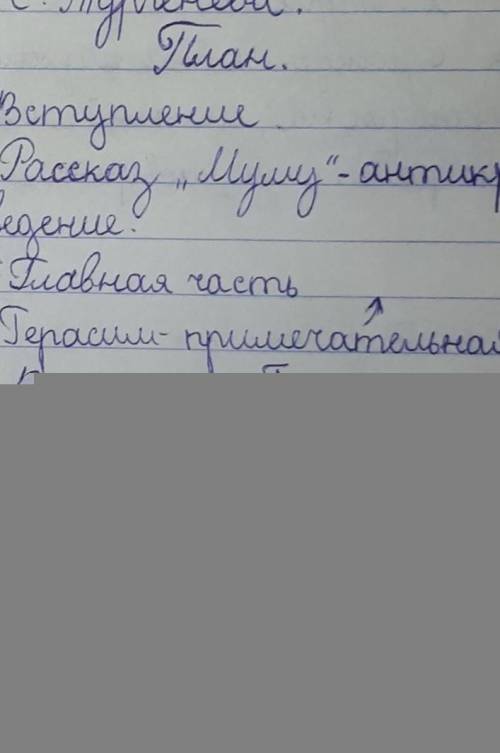 С. Тургенева.
План.
Вступление
Рассказ „Муму“ - антикр
едение.
Главная часть
Герасим - примечательной